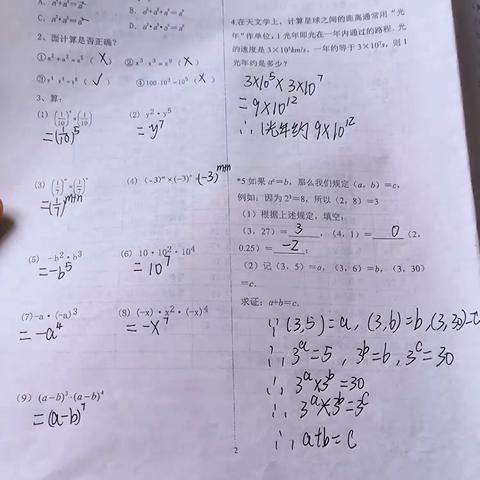 C、a⁴·a³=a⁷
D、a⁴·a³=a⁷
2、面计算是否正确?
① x²+x³=x⁵ (×) ② x³·x³=x⁹ (×)
③ y⁴·y⁴=y⁸ (√) ④ 100·10³=10⁶ (×)
3、算:
(1) (1/10)⁴×(1/10)
=(1/10)⁵
(2) y²·y⁵
=y⁷
(3) (1/7)ᵐ×(1/7)ⁿ
=(1/7)ᵐ⁺ⁿ
(4) (-3)ᵐ×(-3)ⁿ (-3)ᵐ⁺ⁿ
(5) -b²·b³
=-b⁵
(6) 10·10²·10⁴
=10⁷
(7)-a·(-a)³
=-a⁴
(8) (-x)·x²·(-x)⁴
=-x⁷
(9) (a-b)³·(a-b)⁴
=(a-b)⁷
4.在天文学上,计算星球之间的距离通常用“光
年”作单位,1光年即光在一年内通过的路程,光
的速度是3×10⁵km/s,一年约等于3×10⁷s,则1
光年约是多少?
3×10⁵×3×10⁷
=9×10¹²
∴1光年约9×10¹²
*5如果aᶜ=b,那么我们规定(a,b)=c,
例如:因为2³=8,所以(2,8)=3
(1)根据上述规定,填空:
(3,27)=3,(4,1)=0(2,
0.25)=-2;
(2)记(3,5)=a,(3,6)=b,(3,30)
=c.
求证:a+b=c.
∵(3,5)=a,(3,6)=b,(3,30)=c
∴3ᵃ=5,3ᵇ=6,3ᶜ=30
∴3ᵃ×3ᵇ=30
∴3ᵃ×3ᵇ=3ᶜ
∴a+b=c
2